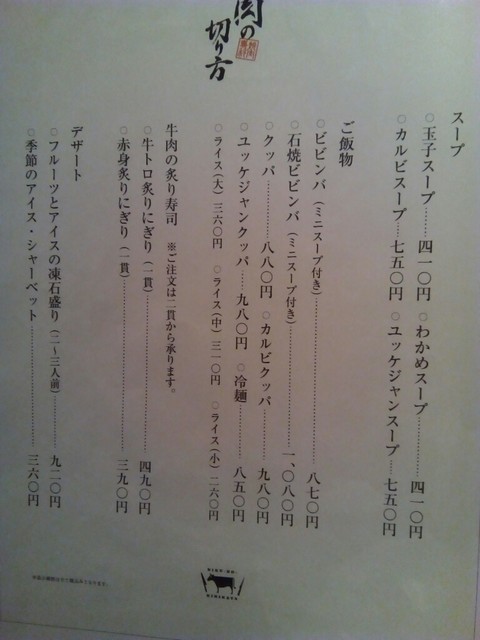 肉の
切り方
スープ
○玉子スープ……四一〇円　○わかめスープ………四一〇円
○カルビスープ…七五〇円　○ユッケジャンスープ…七五〇円
ご飯物
○ビビンバ（ミニスープ付き）………八七〇円
○石焼ビビンバ（ミニスープ付き）………一、〇八〇円
○クッパ………八八〇円　○カルビクッパ………九八〇円
○ユッケジャンクッパ…九八〇円　○冷麺………八五〇円
○ライス（大）三六〇円　○ライス（中）三一〇円　○ライス（小）二六〇円
牛肉の炙り寿司　※ご注文は二貫から承ります。
○牛トロ炙りにぎり（一貫）………四九〇円
○赤身炙りにぎり（一貫）………三九〇円
デザート
○フルーツとアイスの凍石盛り（二〜三人前）………九二〇円
○季節のアイス・シャーベット………三六〇円